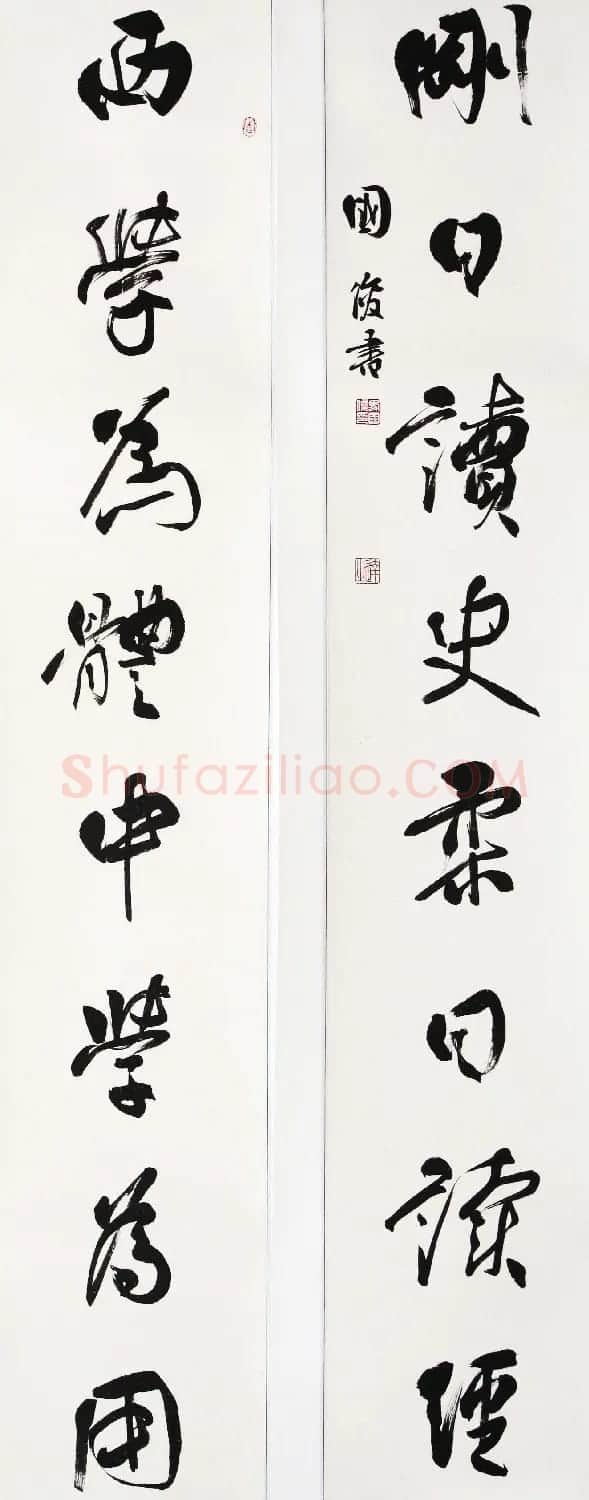 剛日讀史柔日讀經
國俊書
西學為體中學為用
Shufaziliao.COM